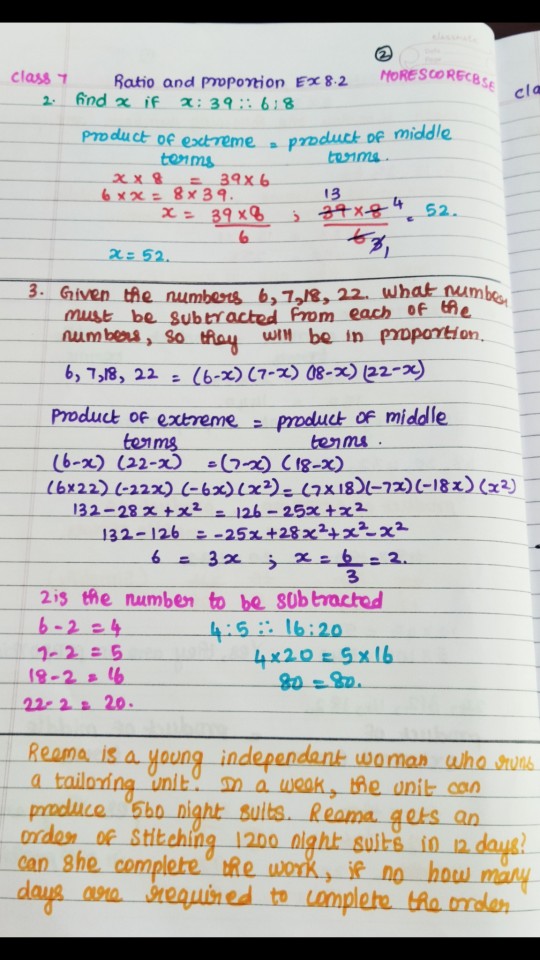 ②
class 7 Ratio and proportion Ex 8.2 MORESCORECBSE
2. find x if x : 39 :: 6 : 8
product of extreme = product of middle
terms terms.
x × 8 = 39 × 6
6 × x = 8 × 39.
x = 39×8/6 ; 13 39 × 8 4 / 6 3 1 = 52.
x = 52.
3. Given the numbers 6, 7, 18, 22. What number
must be subtracted from each of the
numbers, so they will be in proportion.
6, 7, 18, 22 = (6-x) (7-x) (18-x) (22-x)
Product of extreme = product of middle
terms terms.
(6-x) (22-x) = (7-x) (18-x)
(6x22) (-22x) (-6x) (x²) = (7×18) (-7x) (-18x) (x²)
132 - 28x + x² = 126 - 25x + x²
132 - 126 = -25x + 28x² + x² - x²
6 = 3x ; x = 6/3 = 2.
2 is the number to be subtracted
6 - 2 = 4 4 : 5 :: 16 : 20
7 - 2 = 5 4 × 20 = 5 × 16
18 - 2 = 16 80 = 80.
22 - 2 = 20.
Reema is a young independent woman who runs
a tailoring unit. In a week, the unit can
produce 560 night suits. Reema gets an
order of stitching 1200 night suits in 12 days?
can she complete the work, if no how many
days are required to complete the order
cla